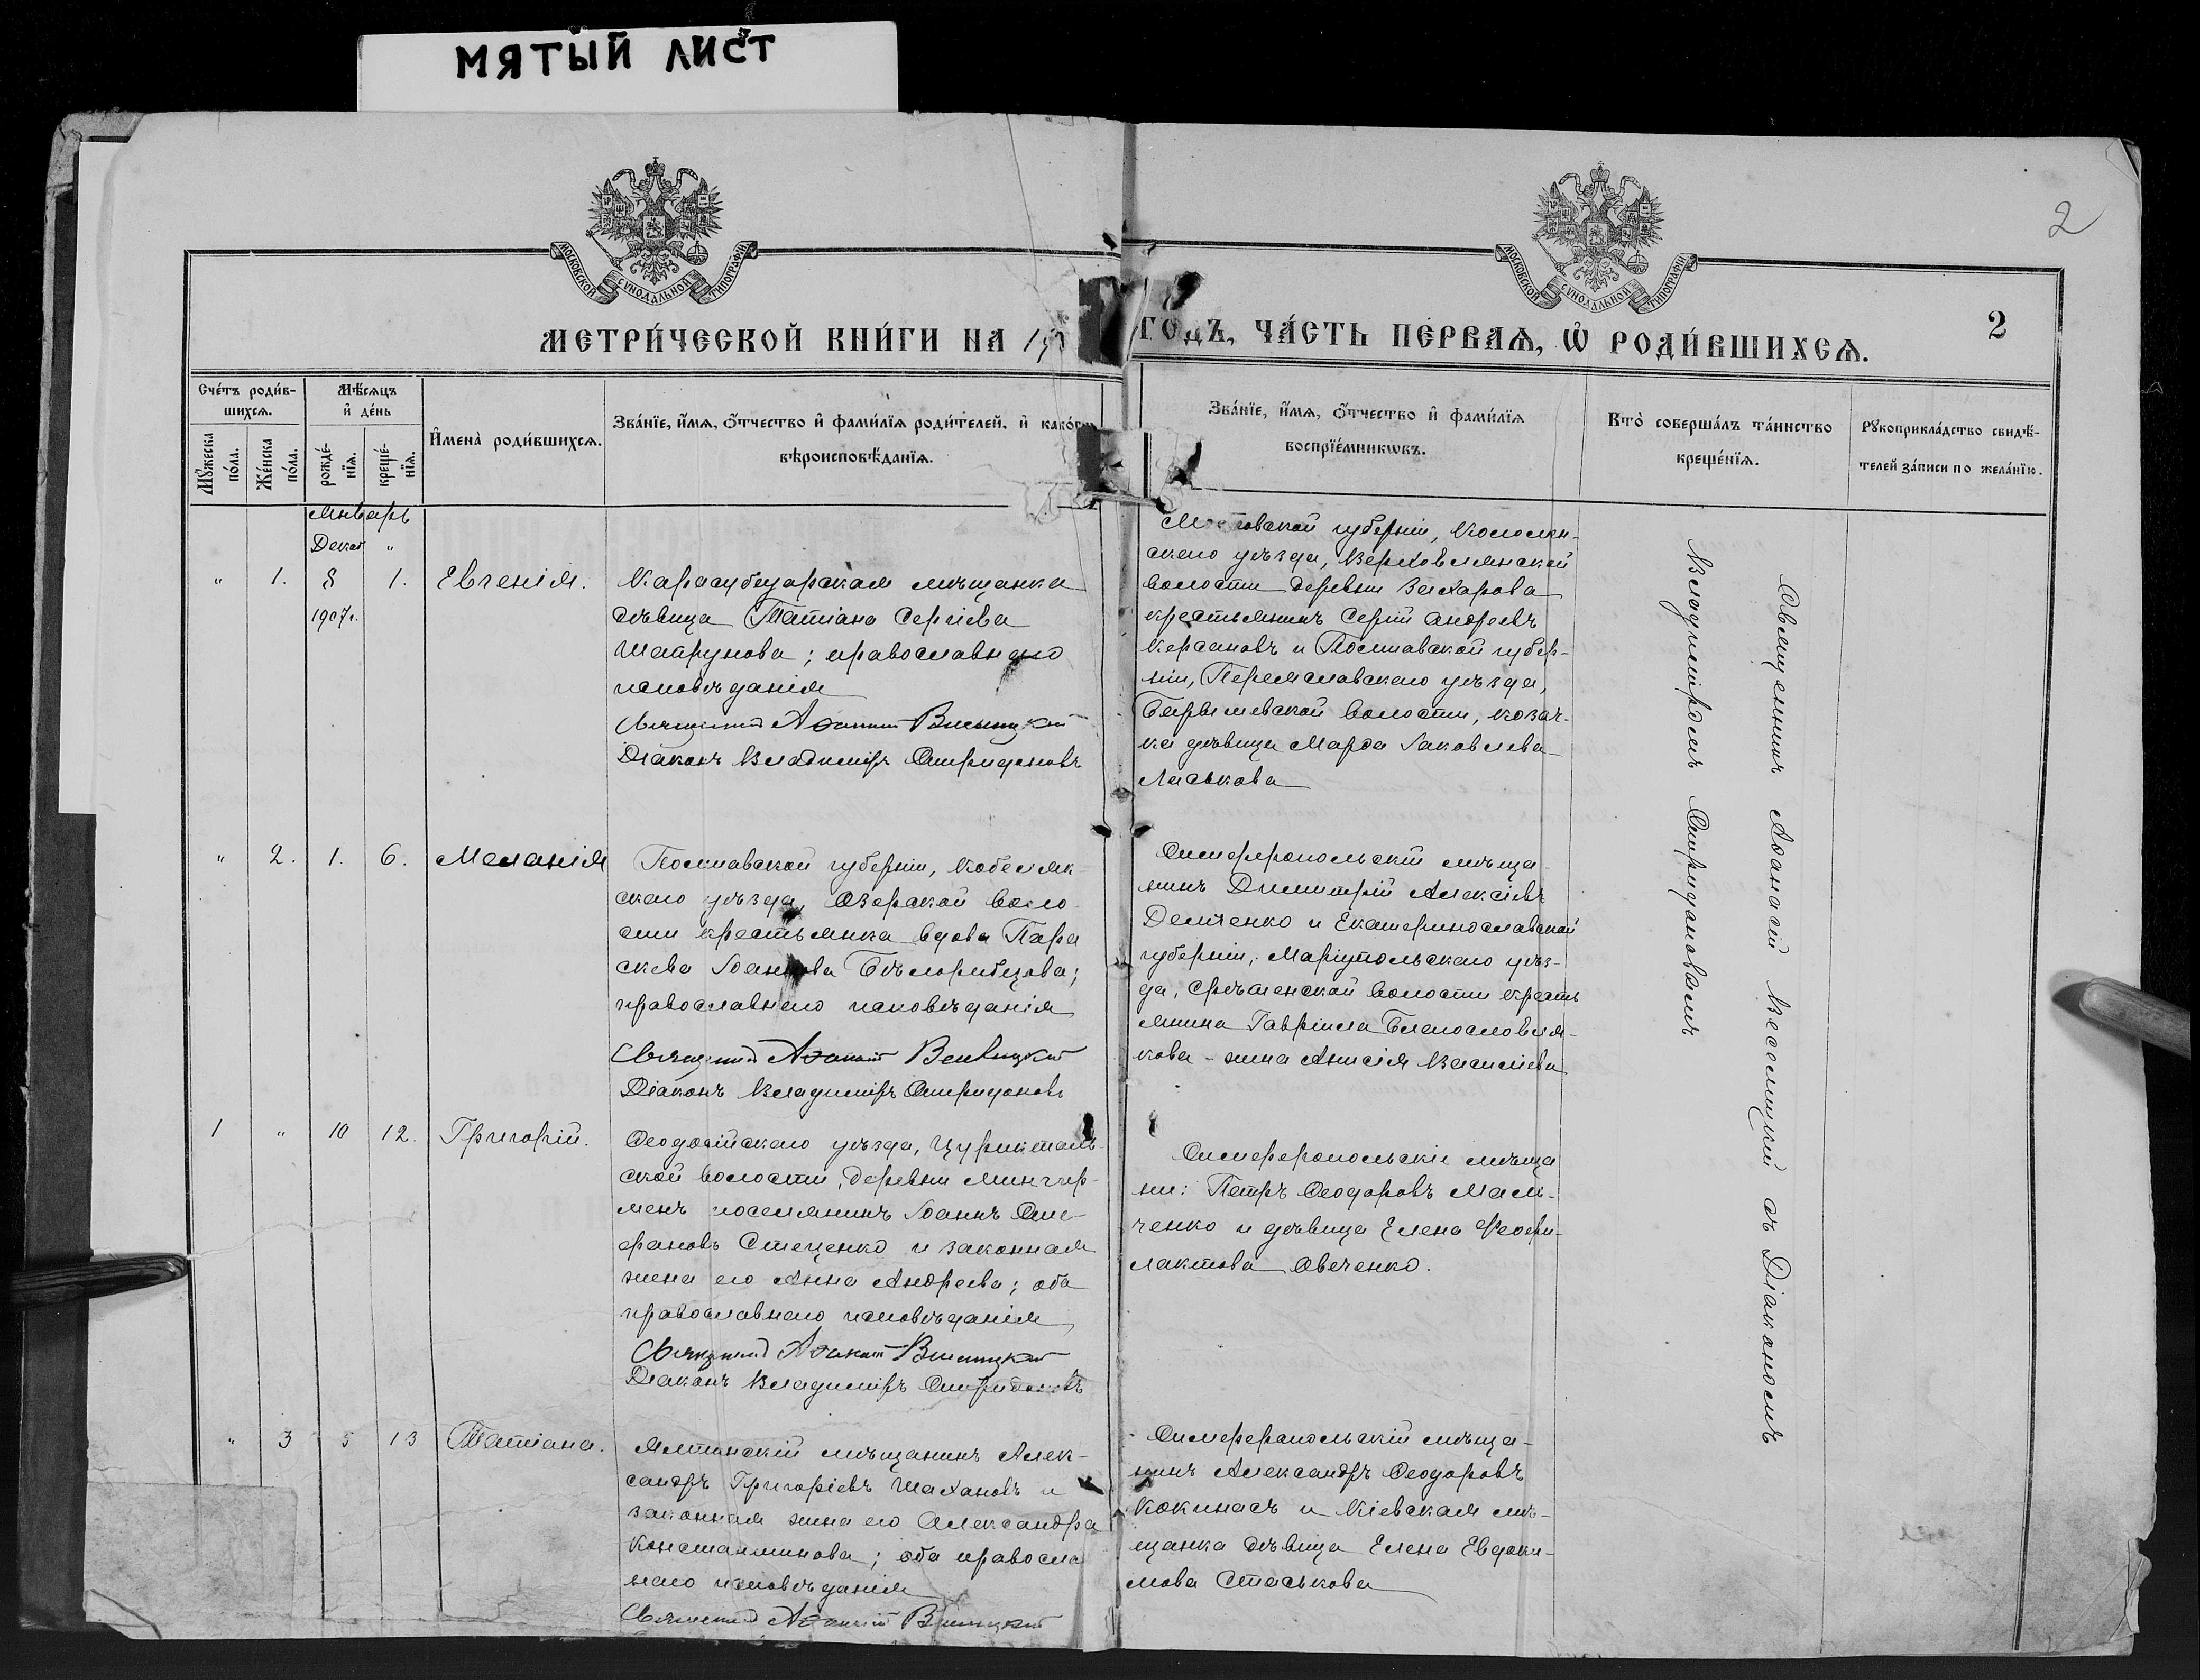 МЯТЫЙ ЛИСТ
2
МОСКОВСКОЙ СѴНОДАЛЬНОЙ ТИПОГРАФІИ
МОСКОВСКОЙ СѴНОДАЛЬНОЙ ТИПОГРАФІИ
МЕТРИ́ЧЕСКОЙ КНИ́ГИ НА 19 ГОДЪ, ЧА́СТЬ ПЕ́РВАѦ, Ѿ РОДИ́ВШИХСѦ.
2
Сче́тъ роди́в-
шихсѧ.
Мꙋ́жеска
по́ла.
Же́нска
по́ла.
Мѣ́сѧцъ
и҆ де́нь
рожде́-
нїѧ.
креще́-
нїѧ.
И҆мена̀ роди́вшихсѧ.
Зва́нїе, и҆́мѧ, ѻ҆́тчество и҆ фами́лїѧ роди́телей, и҆ како́гѡ
вѣроисповѣ́данїѧ.
Зва́нїе, и҆́мѧ, ѻ҆́тчество и҆ фами́лїѧ
воспрїе́мникѡвъ.
Кто̀ соверша́лъ та́инство
креще́нїѧ.
Рꙋкоприкла́дство свидѣ́-
телей за́писи по жела́нїю.
Январь
Декаб "
" 1. 8 1. Евгенія.
1907г.
Карасубазарская мѣщанка
дѣвица Татіана Сергіева
Шапрунова; православнаго
исповѣданія
Священникъ Аѳанасій Веселицкій
Діаконъ Владиміръ Спиридоновъ
Московской губерніи, Коломен-
скаго уѣзда, Верховлянской
волости деревни Захарова
крестьянинъ Сергій Андреевъ
Керсановъ и Полтавской губер-
ніи, Переяславскаго уѣзда,
Барышевской волости, козач-
ка дѣвица Марѳа Іаковлева
Ласькова
" 2. 1. 6. Меланія
Полтавской губерніи, Кобеляк-
скаго уѣзда, Озерской воло
сти крестьянка вдова Пара
скева Іоаннова Бѣлорибцова;
православнаго исповѣданія
Священникъ Аѳанасій Веселицкій
Діаконъ Владиміръ Спиридоновъ
Симферопольскій мѣща-
нинъ Димитрій Алексіевъ
Демченко и Екатеринославской
губерніи, Маріупольскаго уѣз-
да, Срѣтенской волости кресть
янина Гавріила Благословля-
кова - жена Анисія Василіева
1 " 10 12. Григорій.
Ѳеодосійскаго уѣзда, Цурихталь-
ской волости, деревни Минчер-
менъ поселянинъ Іоаннъ Сте-
фановъ Стеценко и законная
жена его Анна Андреева; оба
православнаго исповѣданія
Священникъ Аѳанасій Веселицкій
Діаконъ Владиміръ Спиридоновъ
Симферопольскіе мѣща
не: Петръ Ѳеодоровъ Маль-
ченко и дѣвица Елена Ѳеофи-
лактова Овченко.
" 3 5 13 Татіана.
Ялтинскій мѣщанинъ Алек-
сандръ Григоріевъ Шахановъ и
законная жена его Александра
Константинова; оба правосла
наго исповѣданія
Священникъ Аѳанасій Веселицкій
Симферопольскій мѣща-
нинъ Александръ Ѳеодоровъ
Кокинасъ и Кіевская мѣ-
щанка дѣвица Елена Евдоки-
мова Стаськова
Священникъ Аѳанасій Веселицкій съ Діакономъ
Владиміромъ Спиридоновомъ